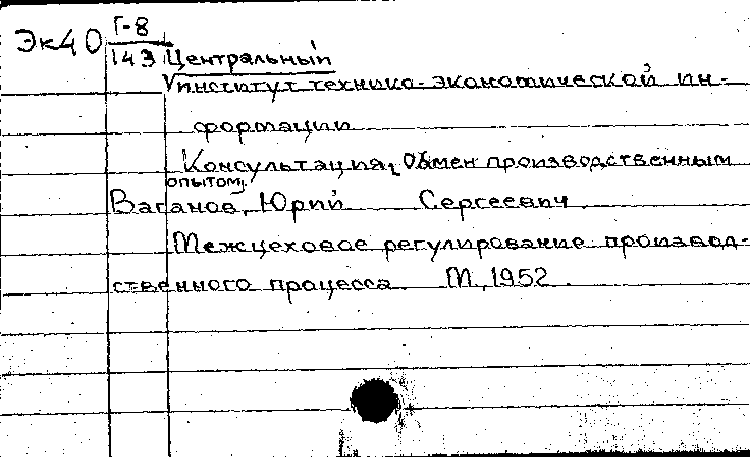 Эк40 Г-8
143 Центральный
институт технико-экономической ин-
формации
Консультация, Обмен производственным
опытом.
Ваганов, Юрий Сергеевич.
Межцеховое регулирование производ-
ственного процесса. М, 1952.